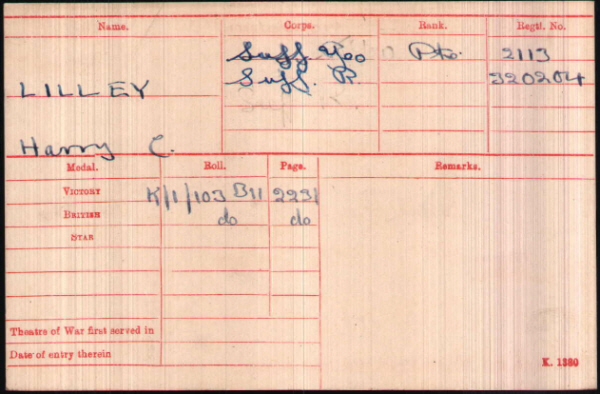 Name. Corps. Rank. Regtl. No.
Suff Yeo Pte. 2113
LILLEY Suff. R. 320204
Harry C.
Medal. Roll. Page. Remarks.
VICTORY K/1/103 B11 2231
BRITISH do do
STAR
Theatre of War first served in
Date of entry therein
K. 1380